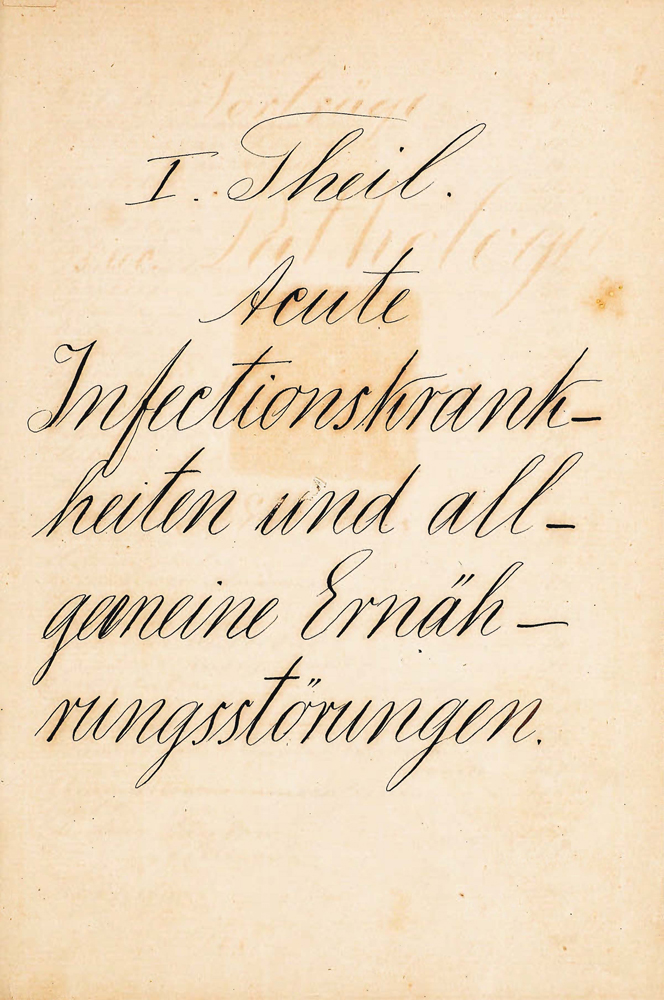 I. Theil.
Acute
Infectionskrank-
heiten und all-
gemeine Ernäh-
rungsstörungen.